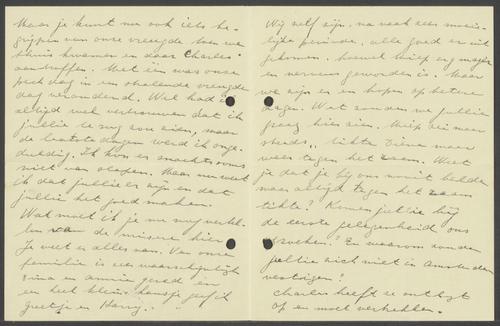 Maar je kunt nu ook iets be-
grijpen van onze vreugde toen we
thuis kwamen en daar Charles
aantroffen. Met één was onze
pechdag in een stralende vreugde
dag veranderd. Wel had ik
altijd wel vertrouwen dat ik
jullie terug zou zien, maar
de laatste dagen werd ik onge-
duldig. Ik kon er snachts soms
niet van slapen. Maar nu weet
ik dat jullie er zijn en dat
jullie het goed maken.
Wat moet ik je nu nog vertel-
len van de misère hier
Je weet er alles van. Van onze
familie is er waarschijnlijk
Sina en Annie gered en
en het kleine hansje
Greetje en Harry.
Wij zelf zijn, na veel zeer moei-
lijke periode, alle goed er uit
gekomen, hoewel Miep erg mager
en nerveus geworden is. Maar
we zijn er en hopen op betere
dagen. Wat zouden we jullie
graag hier zien. Miep zei maar
steeds, tikte Diena maar
weer tegen het raam. Weet
je dat je bij ons nooit belde
maar altijd tegen het raam
tikte? Komen jullie bij
de eerste gelegenheid ons
opzoeken? En waarom zouden
jullie zich niet in Amsterdam
vestigen?
Charles heeft er ontbijt
op en moet vertrekken.